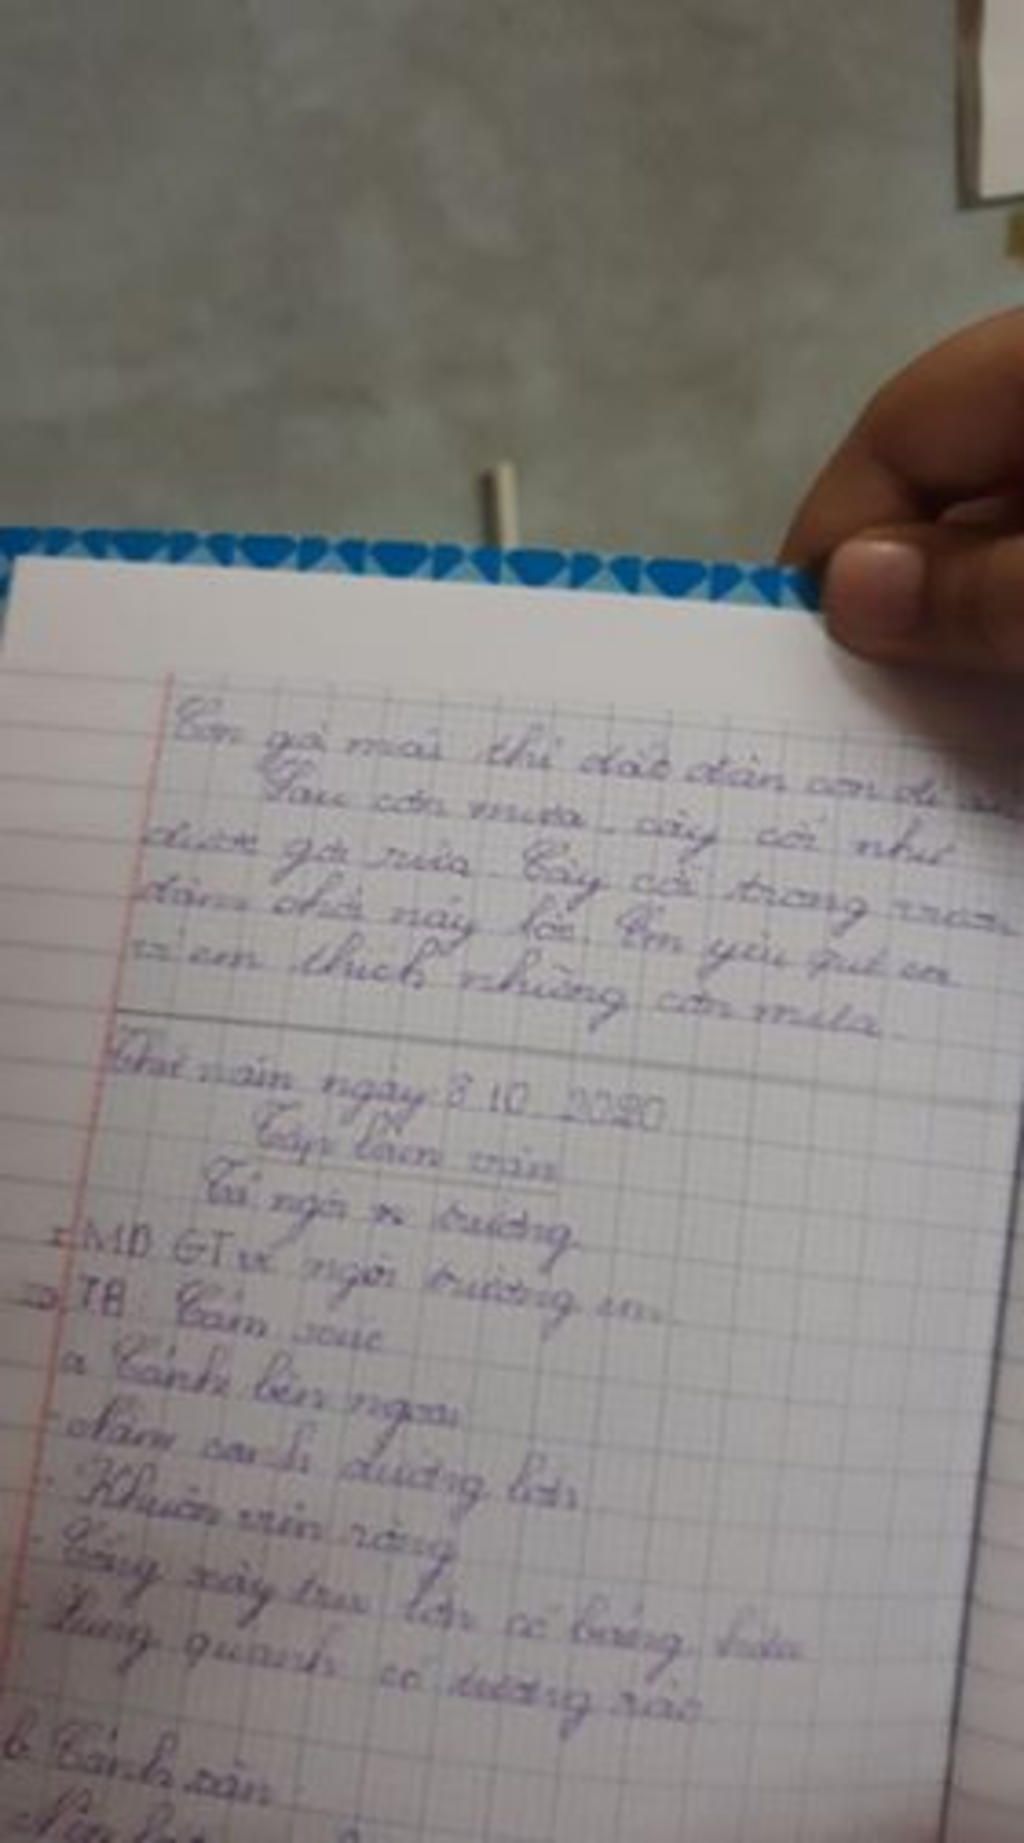 Con gà mái thì dắt đàn con đi
Sau cơn mưa, cây cối như
được gội rửa. Cây cối trong vườn
đâm chồi nảy lộc. Em yêu quê em
vì em thích những cơn mưa.
Thứ năm ngày 8 10 2020
Tập làm văn
Tả ngôi trường
MB GT về ngôi trường em
TB: Cảm xúc
a Cảnh bên ngoài
- Nằm cạnh đường lớn
- Khuôn viên rộng
- Cổng xây trụ lớn có bảng hiệu
- Xung quanh có tường rào
b. Cảnh sân